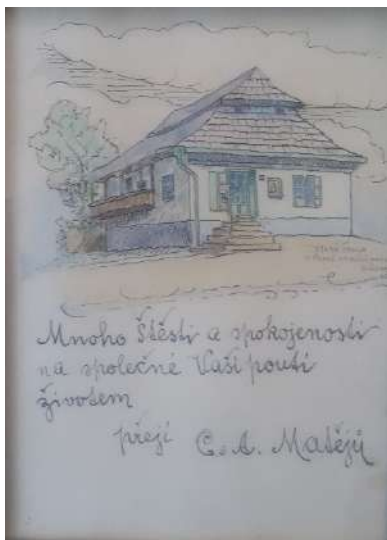 Mnoho Štěstí a spokojenosti
na společné Vaší pouti
životem
přejí C. A. Matějů